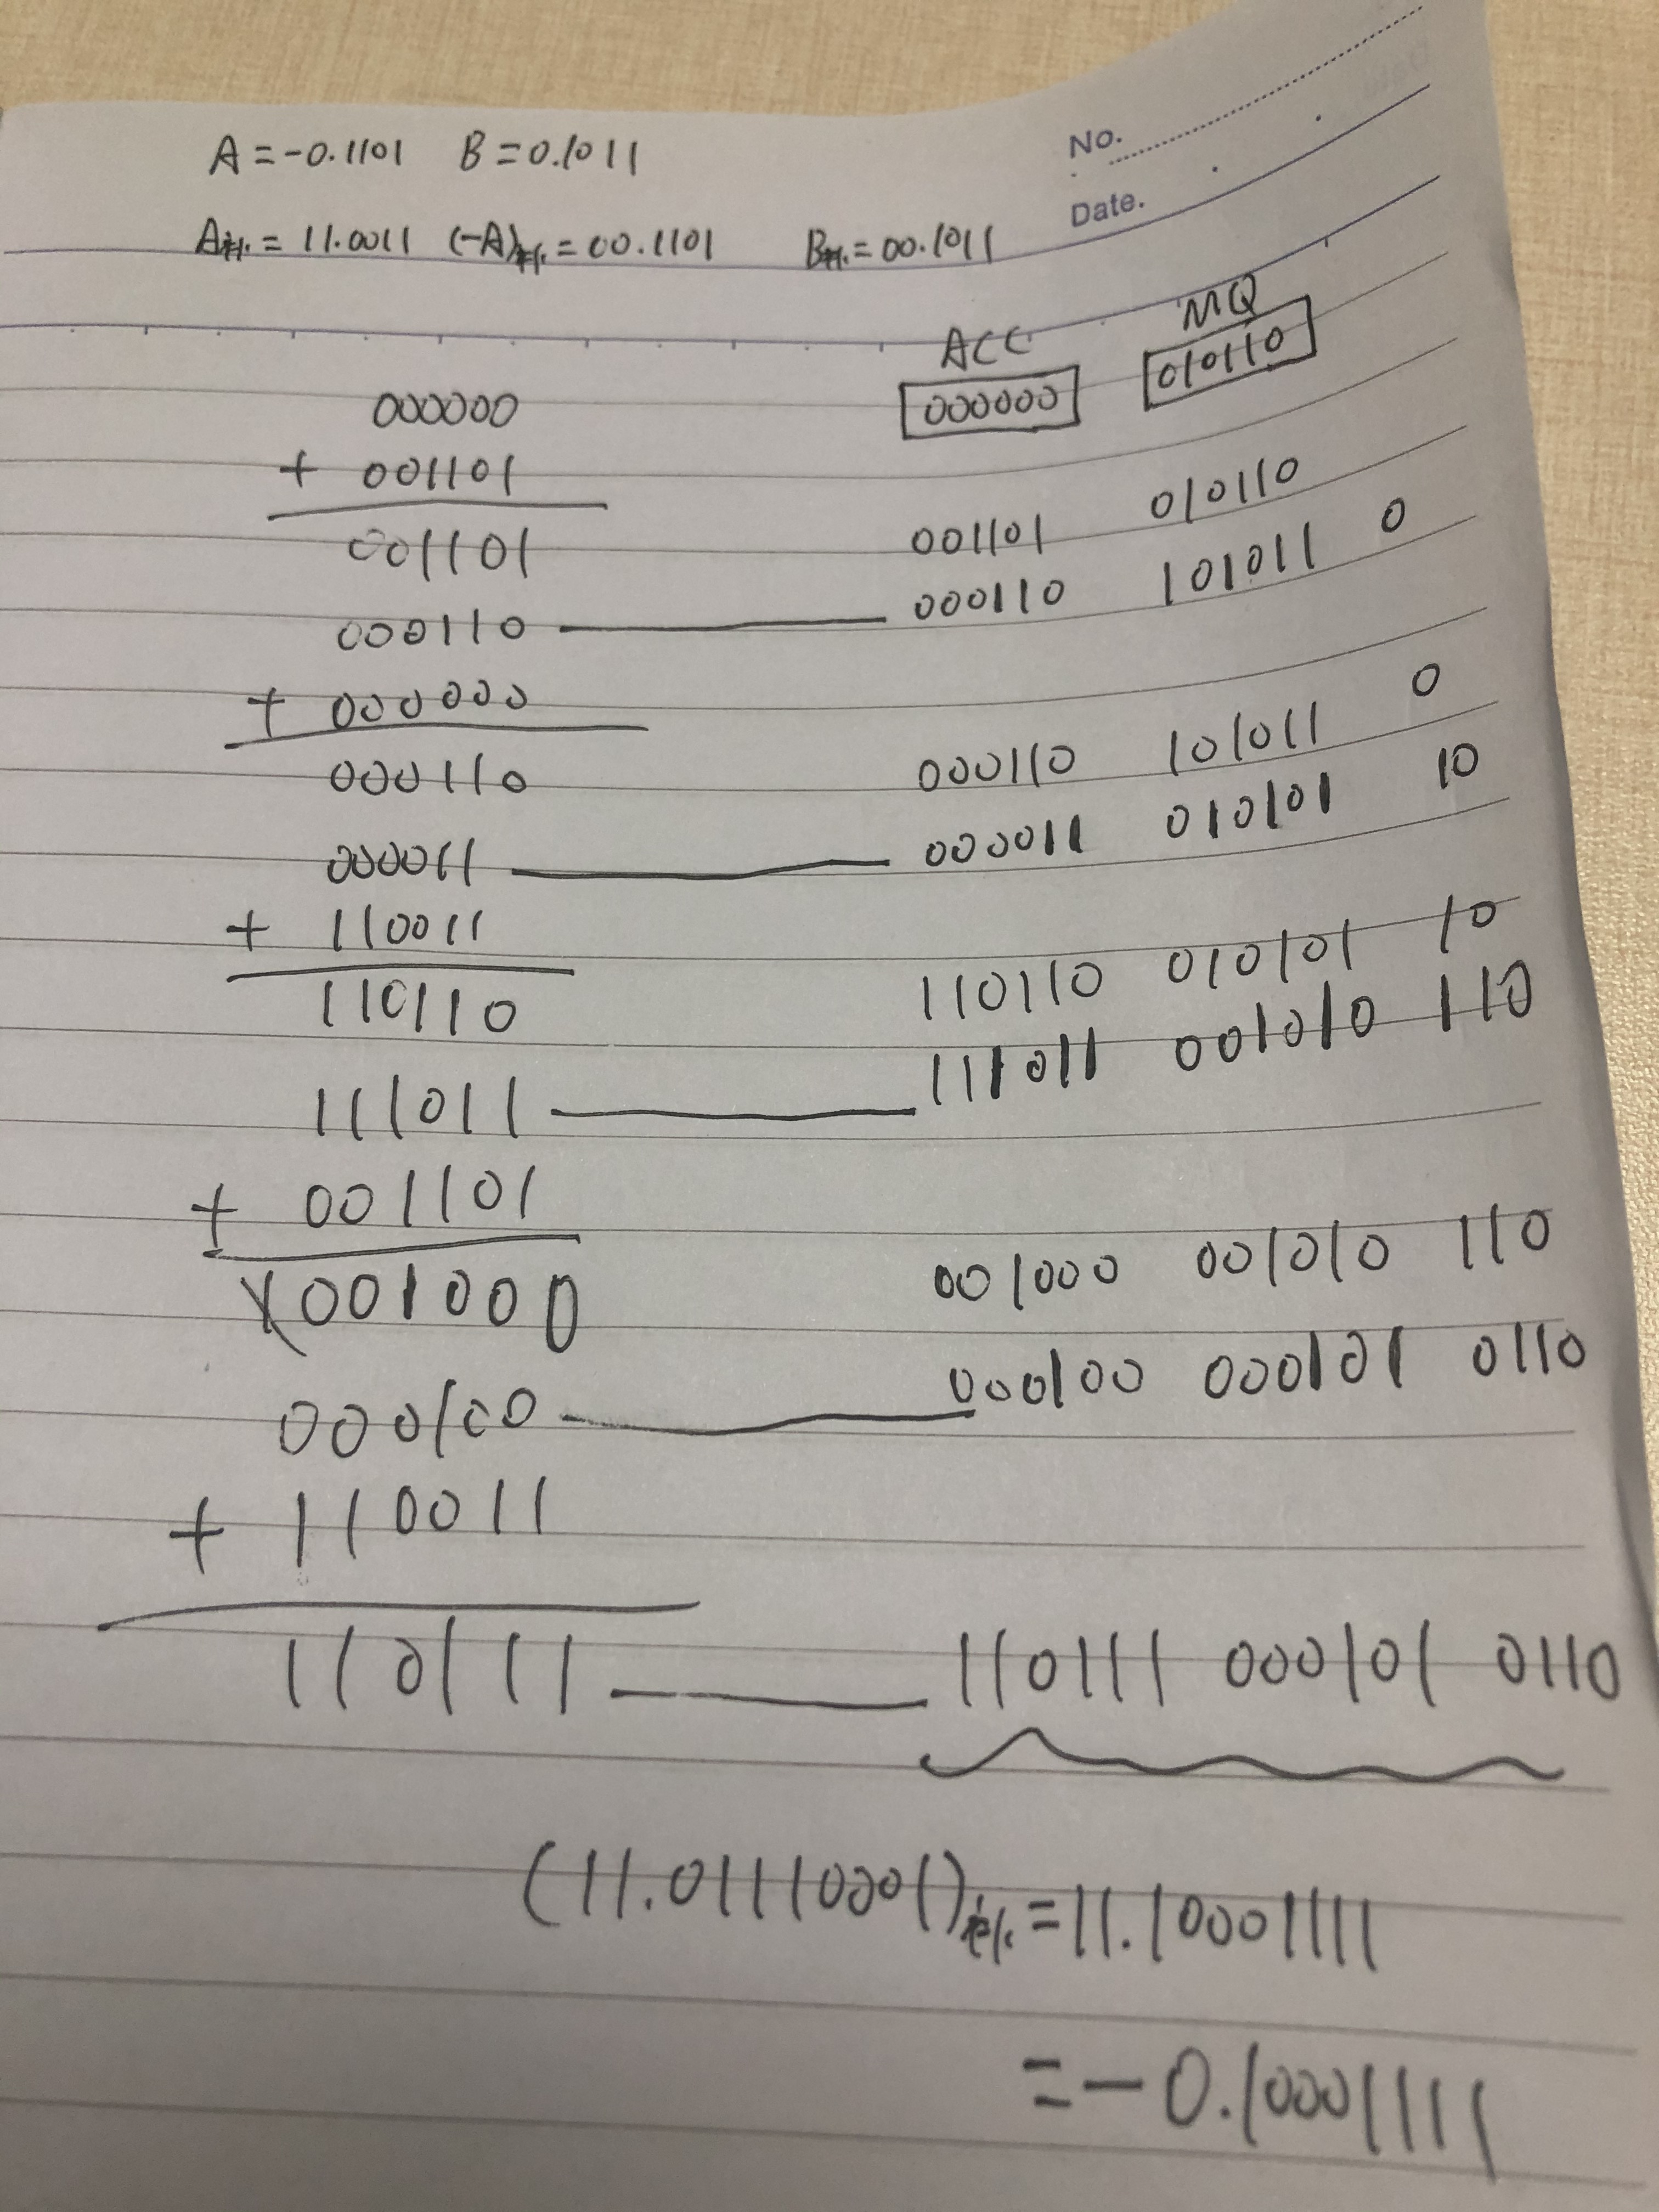 No.
Date.
A=-0.1101 B=0.1011
A补=11.0011 (-A)补=00.1101 B补=00.1011
ACC MQ
000000 000000 010110
+ 001101
001101 001101 010110
000110 000110 101011 0
+ 000000
000110 000110 101011 0
000011 000011 010101 10
+ 110011
110110 110110 010101 10
111011 111011 001010 110
+ 001101
1001000 001000 001010 110
000100 000100 000101 0110
+ 110011
110111 110111 000101 0110
(11.01110001)补=11.10001111
=-0.10001111